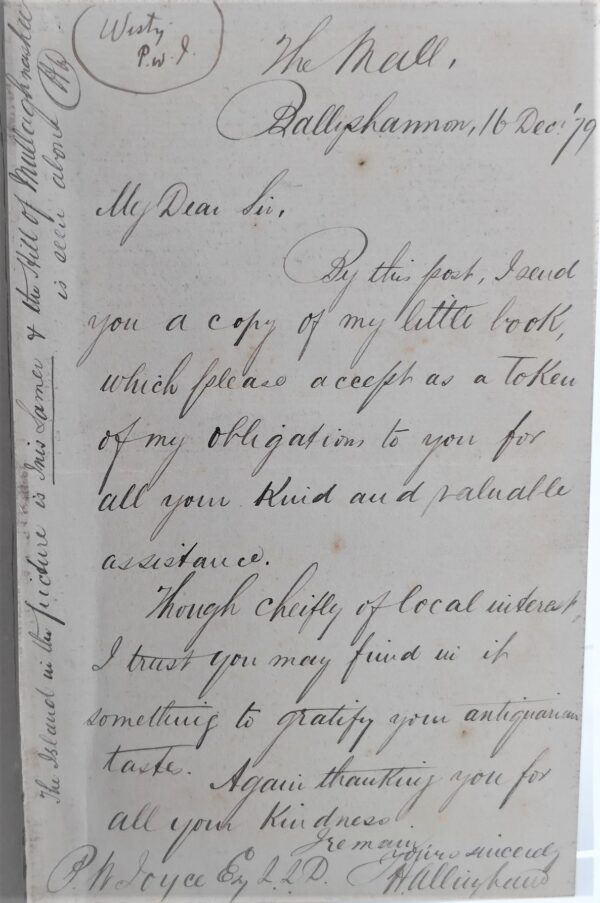 P.W.J.
The Mall,
Ballyshannon, 16 Dec.' 79
My Dear Sir,
By this post, I send
you a copy of my little book,
which please accept as a token
of my obligations to you for
all your kind and valuable
assistance.
Though cheifly of local interest,
I trust you may find in it
something to gratify your antiquarian
taste. Again thanking you for
all your kindness
I remain
yours sincerely
P. W Joyce Esq L.L.D. H Allingham
The Island in the picture is Inis Samer & the Hill of Mullaghnashee
is seen about